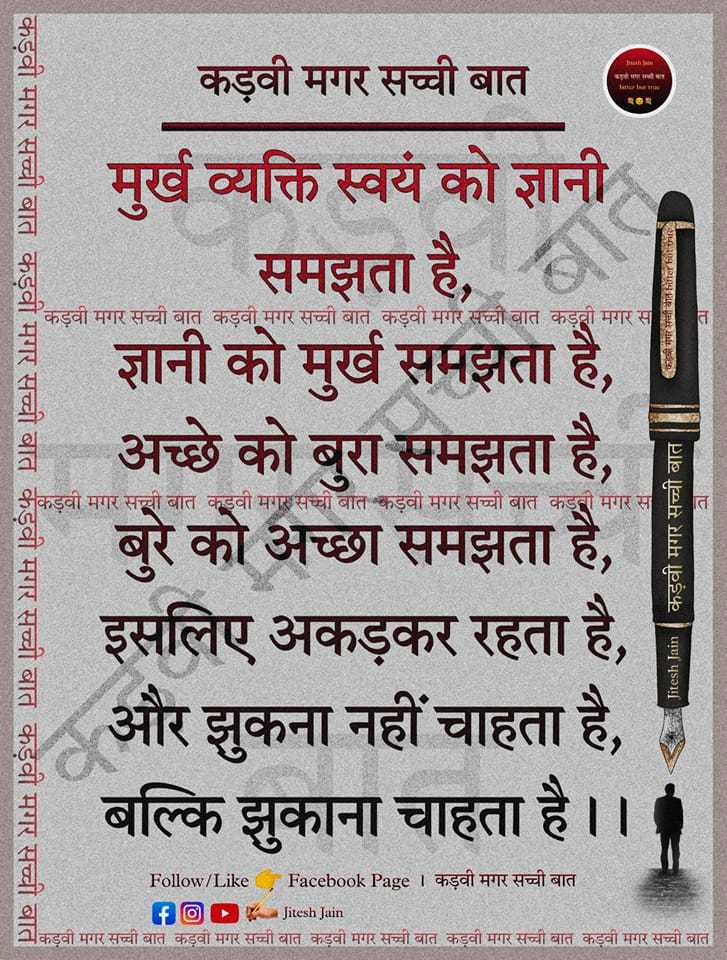 कड़वी मगर सच्ची बात
Jitesh Jain
कड़वी मगर सच्ची बात
bitter but true
मुर्ख व्यक्ति स्वयं को ज्ञानी
समझता है,
कड़वी मगर सच्ची बात कड़वी मगर सच्ची बात कड़वी मगर सच्ची बात कड़वी मगर स त
ज्ञानी को मुर्ख समझता है,
अच्छे को बुरा समझता है,
कड़वी मगर सच्ची बात कड़वी मगर सच्ची बात कड़वी मगर सच्ची बात कड़वी मगर स त
बुरे को अच्छा समझता है,
इसलिए अकड़कर रहता है,
और झुकना नहीं चाहता है,
बल्कि झुकाना चाहता है।।
Follow/Like 👉 Facebook Page । कड़वी मगर सच्ची बात
Jitesh Jain
कड़वी मगर सच्ची बात कड़वी मगर सच्ची बात कड़वी मगर सच्ची बात कड़वी मगर सच्ची बात कड़वी मगर सच्ची बात
कड़वी मगर सच्ची बात कड़वी मगर सच्ची बात कड़वी मगर सच्ची बात कड़वी मगर सच्ची बात
Jitesh Jain कड़वी मगर सच्ची बात
कड़वी मगर सच्ची बात